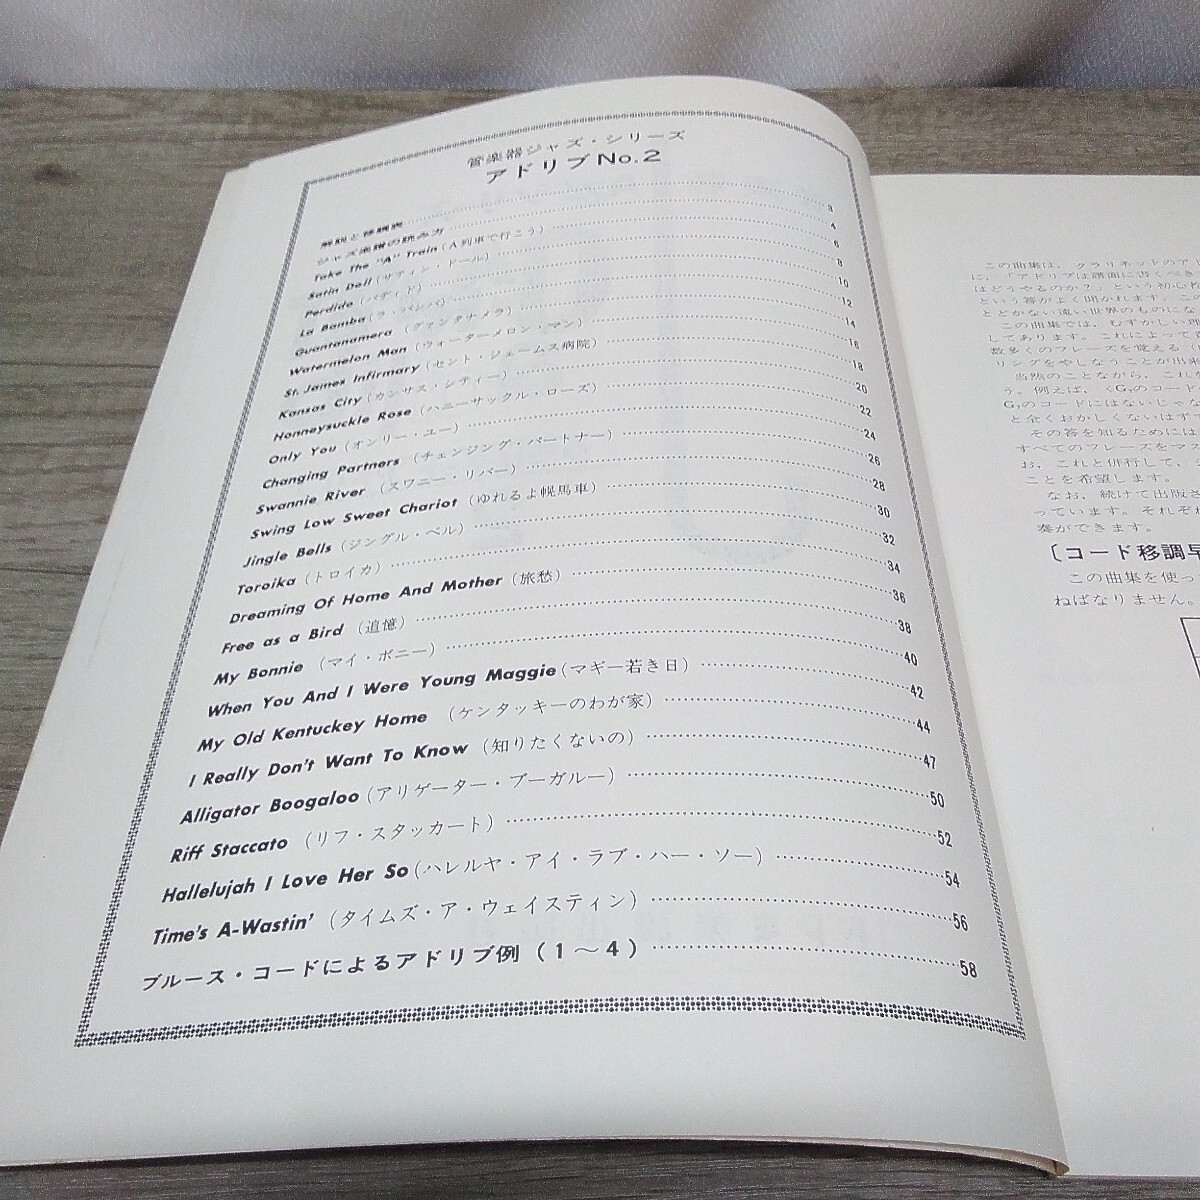 管楽器ジャズ・シリーズ
アドリブNo.2
解説と移調表 3
ジャズ楽譜の読み方 4
Take The "A" Train (A列車で行こう) 6
Satin Doll (サティン・ドール) 8
Perdido (パディド) 10
La Bamba (ラ・バンバ) 12
Guantanamera (グァンタナメラ) 14
Watermelon Man (ウォーターメロン・マン) 16
St. James Infirmary (セント・ジェームス病院) 18
Kansas City (カンサス・シティー) 20
Honneysuckle Rose (ハニーサックル・ローズ) 22
Only You (オンリー・ユー) 24
Changing Partners (チェンジング・パートナー) 26
Swannie River (スワニー・リバー) 28
Swing Low Sweet Chariot (ゆれるよ幌馬車) 30
Jingle Bells (ジングル・ベル) 32
Toroika (トロイカ) 34
Dreaming Of Home And Mother (旅愁) 36
Free as a Bird (追憶) 38
My Bonnie (マイ・ボニー) 40
When You And I Were Young Maggie (マギー若き日) 42
My Old Kentuckey Home (ケンタッキーのわが家) 44
I Really Don't Want To Know (知りたくないの) 47
Alligator Boogaloo (アリゲーター・ブーガルー) 50
Riff Staccato (リフ・スタッカート) 52
Hallelujah I Love Her So (ハレルヤ・アイ・ラブ・ハー・ソー) 54
Time's A-Wastin' (タイムズ・ア・ウェイスティン) 56
ブルース・コードによるアドリブ例 (1～4) 58
この曲集は、クラリネットのアド
に、「アドリブは譜面に書くべき
はどうやるのか？」という初心
という答がよく聞かれます。こ
とどかない遠い世界のものにな
この曲集では、むずかしい理
してあります。これによって
数多くのフレーズを覚える
リングをやしなうことが出来
当然のことながら、これを
う。例えば、〈G₇のコード
G₇のコードにはないじゃな
と全くおかしくないはず
その答を知るためには
すべてのフレーズをマ
お、これと併行して、
ことを希望します。
なお、続けて出版さ
っています。それぞれ
奏ができます。
〔コード移調早
この曲集を使っ
ねばなりません。